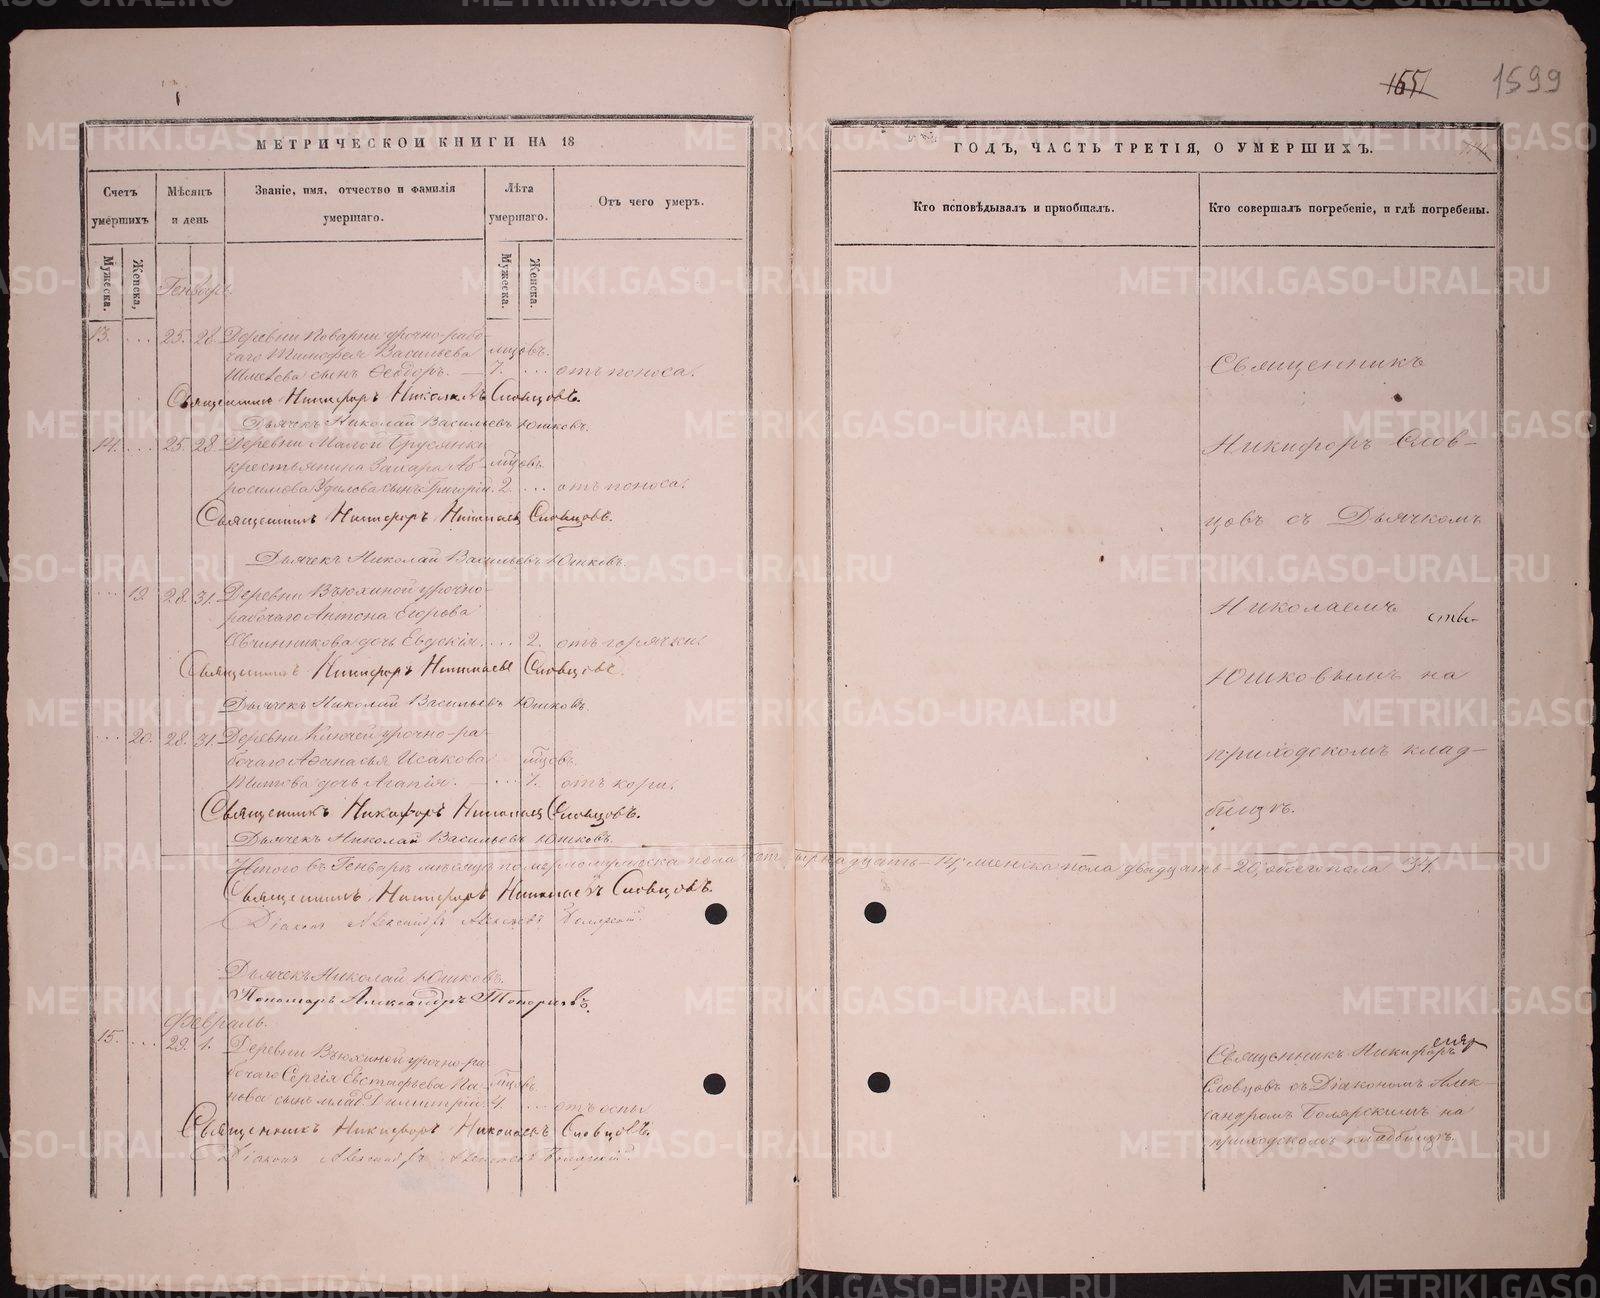 1651 1599
МЕТРИЧЕСКОЙ КНИГИ НА 18
ГОДЪ, ЧАСТЬ ТРЕТІЯ, О УМЕРШИХЪ.
Счетъ умершихъ
Мѣсяцъ и день
Званіе, имя, отчество и фамилія умершаго.
Лѣта умершаго.
Отъ чего умеръ.
Кто исповѣдывалъ и пріобщалъ.
Кто совершалъ погребеніе, и гдѣ погребены.
Мужеска.
Женска,
Мужеска.
Женска.
Генварь
13. ... 25. 28. Деревни Поварни урочно-рабо-
чаго Тимофея Васильева мцовъ.
сынъ Ѳеодоръ. — 7. ... отъ поноса.
Священникъ Никифоръ Николаевъ Словцовъ.
Дьячекъ Николай Васильевъ Юшковъ.
14. ... 25. 28. Деревни Малой Брусянки
крестьянина Захара Аб- мцовъ.
росимова сынъ Григорій. 2. ... отъ поноса.
Священникъ Никифоръ Николаевъ Словцовъ.
Дьячекъ Николай Васильевъ Юшковъ.
... 19. 28. 31. Деревни Вьюхиной урочно-
рабочаго Антона Егорова
Овчинникова дочь Евдокія. ... 2. отъ горячки.
Священникъ Никифоръ Николаевъ Словцовъ.
Дьячекъ Николай Васильевъ Юшковъ.
... 20. 28. 31. Деревни Ключей урочно-ра-
бочаго Аѳанасья Исакова мцовъ.
Титова дочь Агапія. — ... 7. отъ кори.
Священникъ Никифоръ Николаевъ Словцовъ.
Дьячекъ Николай Васильевъ Юшковъ.
Итого въ Генварѣ мѣсяцѣ померло мужеска пола четырнадцать — 14, женска пола двадцать — 20, обоего пола 34.
Священникъ Никифоръ Николаевъ Словцовъ.
Діаконъ Александръ Алексѣевъ Боярскій.
Дьячекъ Николай Юшковъ.
Пономарь Александръ Топорковъ.
Февраль.
15. ... 29. 1. Деревни Вьюхиной урочно-ра-
бочаго Сергія Евстафьева Па- мцовъ.
нова сынъ млад. Димитрій. 4. ... отъ оспы
Священникъ Никифоръ Николаевъ Словцовъ.
Діаконъ Александръ Алексѣевъ Боярскій.
Священникъ
Никифоръ Слов-
цовъ съ Дьячкомъ
Николаемъ
Юшковымъ на
приходскомъ клад-
бищѣ.
Священникъ Никифоръ
Словцовъ съ Діакономъ Алек-
сандромъ Боярскимъ на
приходскомъ кладбищѣ.
METRIKI.GASO-URAL.RU